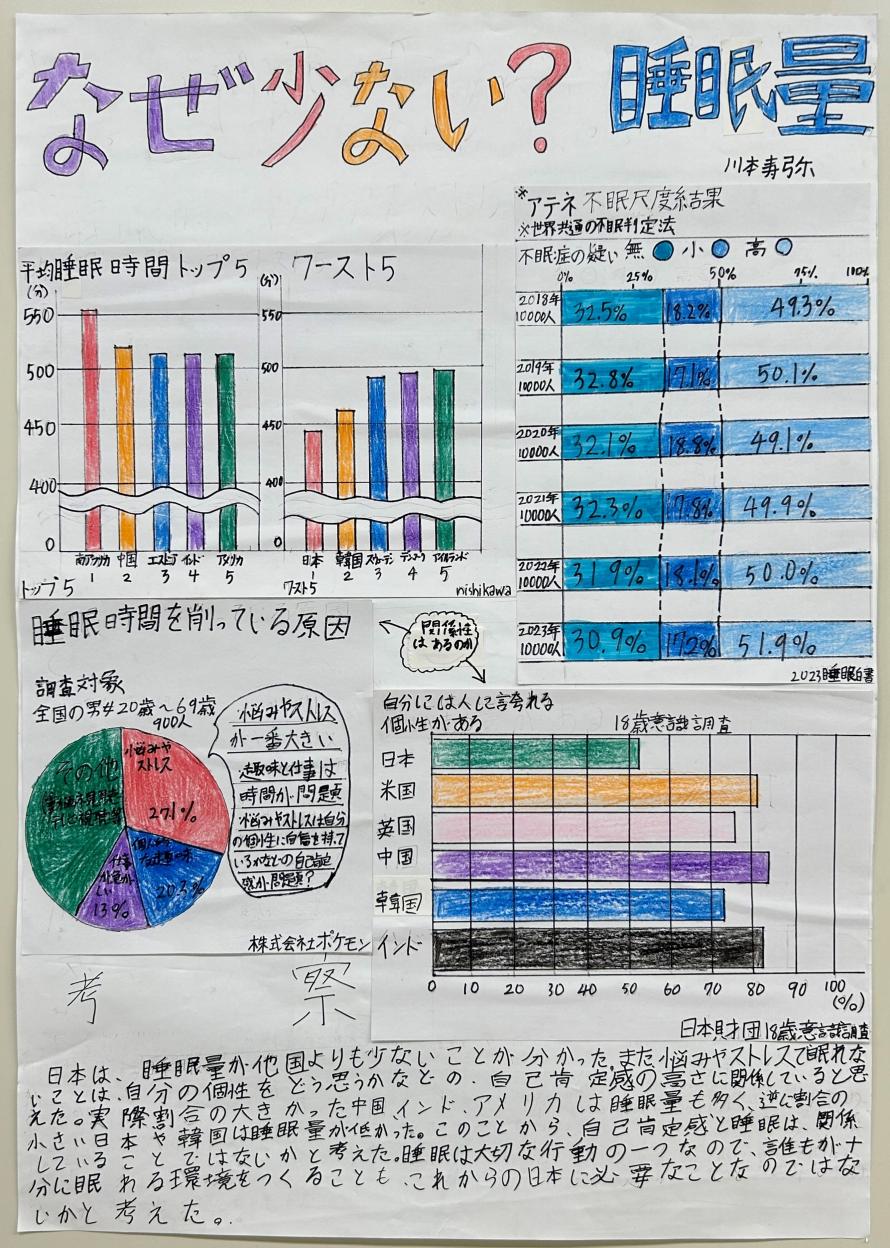 なぜ少ない?睡眠量
川本寿弥
平均睡眠時間トップ5 ワースト5
(分) (分)
550 550
500 500
450 450
400 400
0 0
南アフリカ 中国 エストニア インド アメリカ
1 2 3 4 5
トップ5
日本 韓国 スウェーデン デンマーク アイルランド
1 2 3 4 5
ワースト5
nishikawa
※アテネ不眠尺度結果
※世界共通の不眠判定法
不眠症の疑い 無 小 高
0% 25% 50% 75% 100%
2018年 10000人 32.5% 18.2% 49.3%
2019年 10000人 32.8% 17.1% 50.1%
2020年 10000人 32.1% 18.8% 49.1%
2021年 10000人 32.3% 17.8% 49.9%
2022年 10000人 31.9% 18.1% 50.0%
2023年 10000人 30.9% 17.2% 51.9%
2023睡眠白書
睡眠時間を削っている原因
調査対象
全国の男女20歳~69歳
900人
悩みや
ストレス
27.1%
個人的
な趣味
20.3%
仕事
が忙が
しい
13%
その他
関係性
はあるのか
悩みやストレス
が一番大きい
趣味と仕事は
時間が問題
悩みやストレスは自分
の個性に自信を持て
いるかなどの自己肯定
感が問題?
株式会社ポケモン
自分には人に言誇れる
個性がある
18歳意識調査
日本
米国
英国
中国
韓国
インド
0 10 20 30 40 50 60 70 80 90 100
(%)
日本財団18歳意識調査
考 察
日本は、睡眠量が他国よりも少ないことが分かった。また悩みやストレスで眠れな
いことは、自分の個性をどう思うかなどの、自己肯定感の高さに関係していると思
えた。実際割合の大きかった中国、インド、アメリカは睡眠量も多く、逆に割合の
小さい日本や韓国は睡眠量が低かった。このことから、自己肯定感と睡眠は、関係
していることではないかと考えた。睡眠は大切な行動の一つなので、誰もが十
分に眠れる環境をつくることも、これからの日本に必要なことなのではな
いかと考えた。